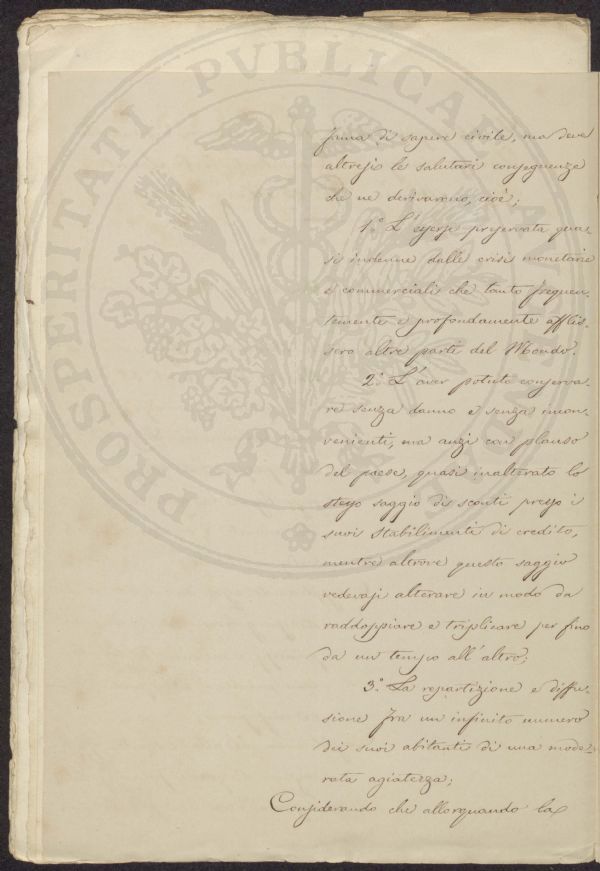 fama di sapere civile, ma deve
altresì le salutari conseguenze
che ne derivarono, cioè;
1.° L'essersi preservata qua-
si indenne dalle crisi monetarie
e commerciali che tanto frequen-
temente e profondamente afflis-
sero altre parti del Mondo.
2.° L'aver potuto conserva-
re senza danno e senza incon-
venienti, ma anzi con plauso
del paese, quasi inalterato lo
stesso saggio di sconti presso i
suoi stabilimenti di credito,
mentre altrove questo saggio
vedevasi alterare in modo da
raddoppiare e triplicare per fino
da un tempo all'altro;
3.° La repartizione e diffu-
sione fra un infinito numero
dei suoi abitanti di una mode-
rata agiatezza;
Considerando che allorquando la
PROSPERITATI PVBLICAE